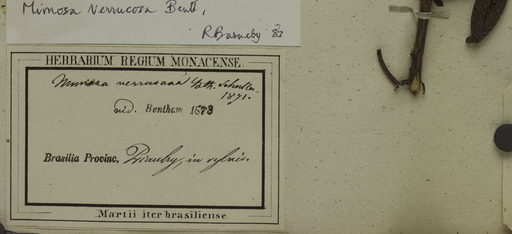 Mimosa verrucosa Benth,
R Barneby 83
HERBARIUM REGIUM MONACENSE.
Mimosa verrucosa Bth.
1871.
vid. Bentham 1873
Brasilia Provinc. Piauhy, in sylvis.
Martii iter brasiliense.